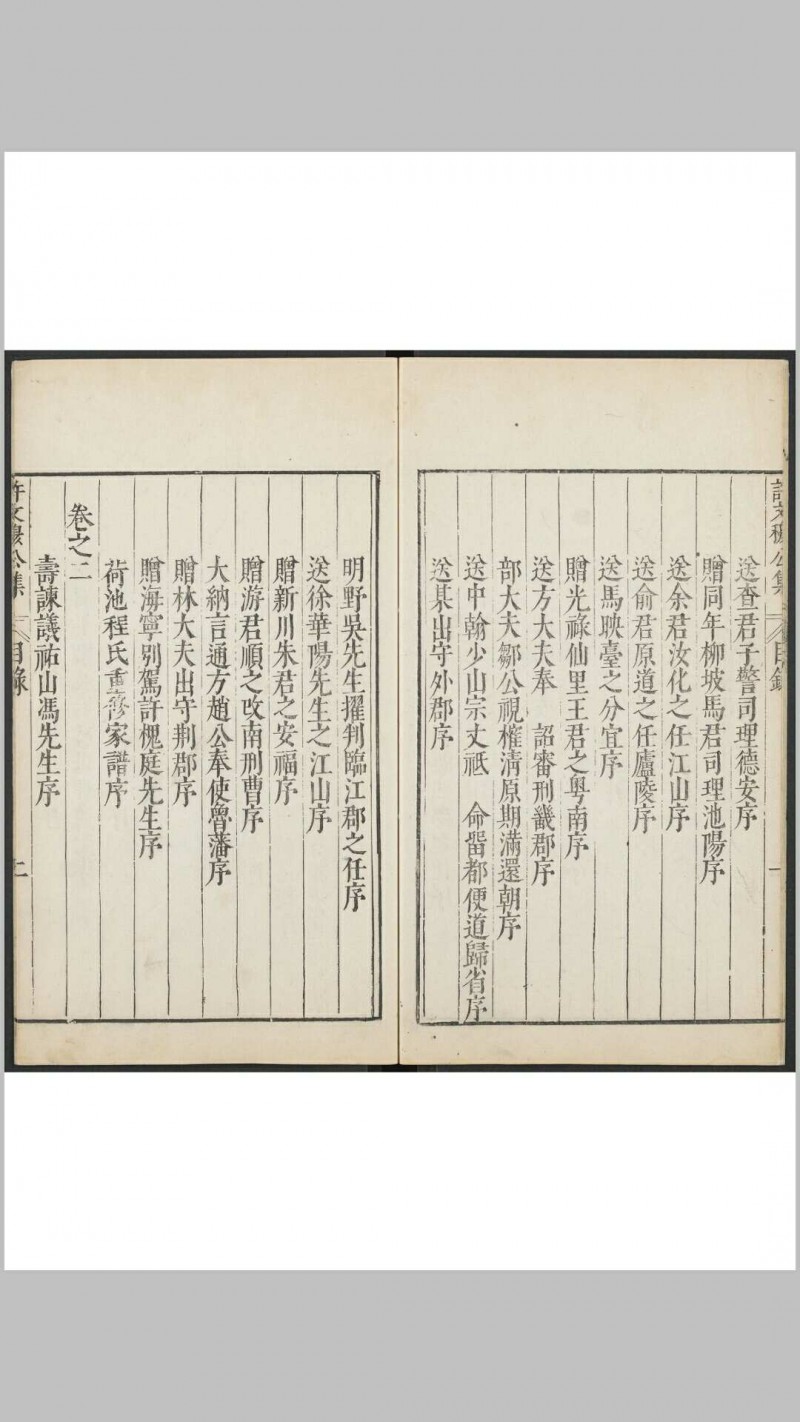 許文穆公集 目錄 一
送查君子警司理德安序
贈同年柳坡馬君司理池陽序
送余君汝化之任江山序
送俞君原道之任廬陵序
送馬映臺之分宜序
贈光祿仙里王君之粤南序
送方大夫奉 詔審刑畿郡序
部大夫鄒公視榷清原期滿還朝序
送中翰少山宗丈祗 命畱都便道歸省序
送某出守外郡序
明野吳先生擢判臨江郡之任序
送徐華陽先生之江山序
贈新川朱君之安福序
贈游君順之改南刑曹序
大納言通方趙公奉使魯藩序
贈林大夫出守荆郡序
贈海寧别駕許槐庭先生序
荷池程氏重修家譜序
卷之二
壽諫議祐山馮先生序
許文穆公集 目錄